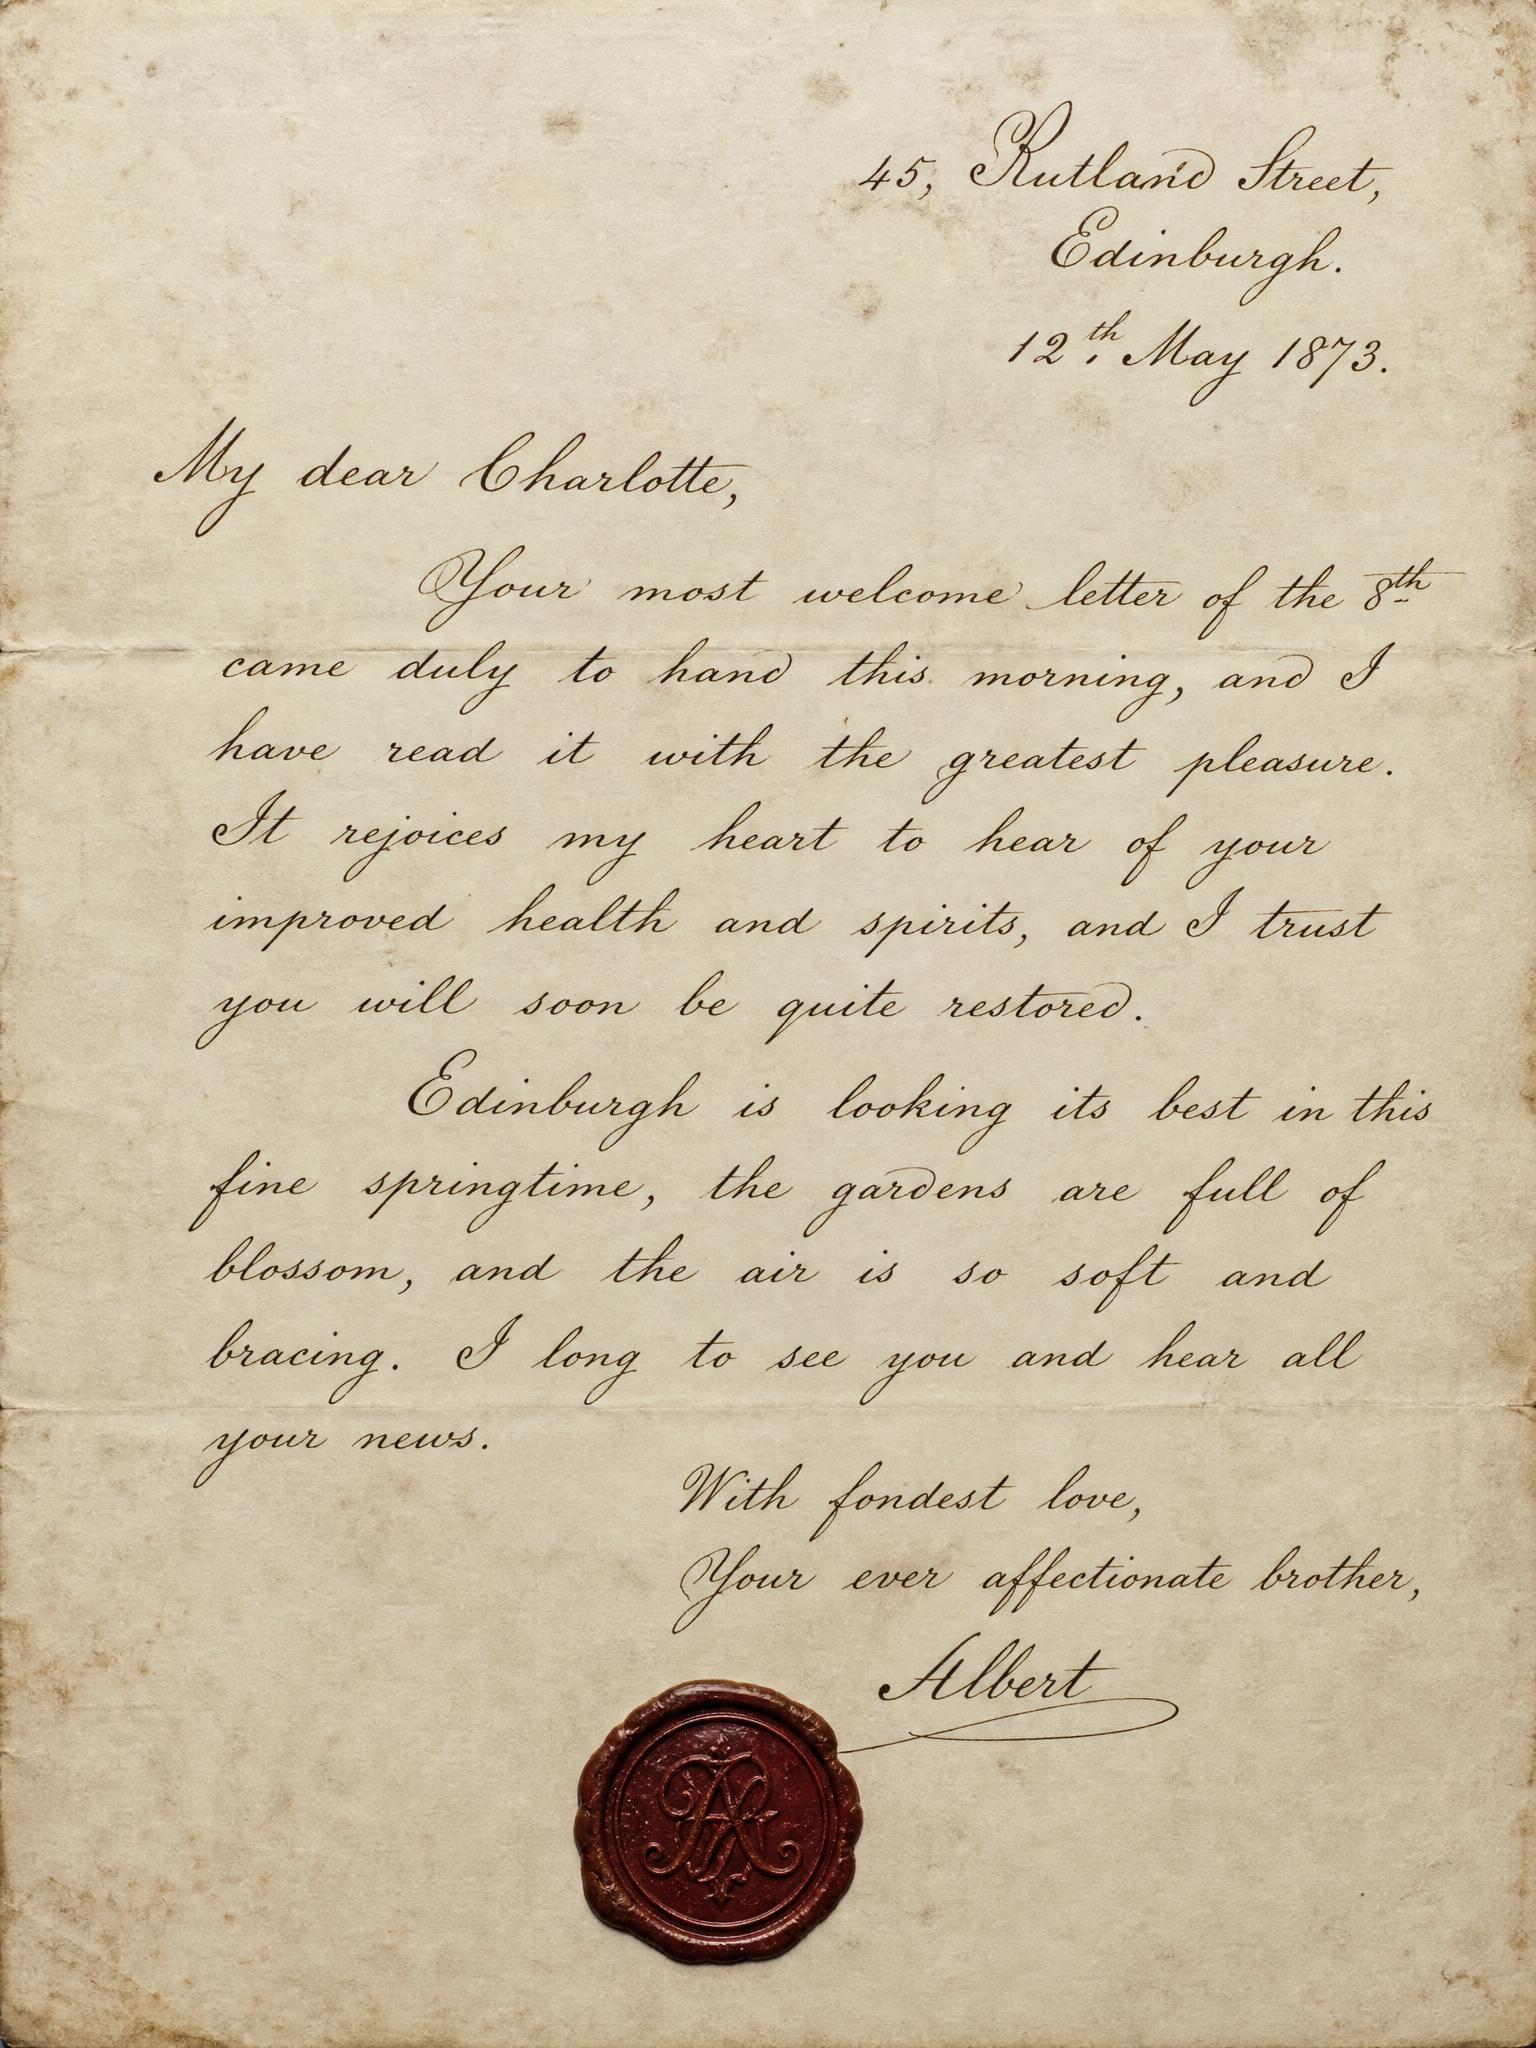 45, Rutland Street,
Edinburgh.
12th. May 1873.
My dear Charlotte,
Your most welcome letter of the 8th
came duly to hand this morning, and I
have read it with the greatest pleasure.
It rejoices my heart to hear of your
improved health and spirits, and I trust
you will soon be quite restored.
Edinburgh is looking its best in this
fine springtime, the gardens are full of
blossom, and the air is so soft and
bracing. I long to see you and hear all
your news.
With fondest love,
Your ever affectionate brother,
Albert